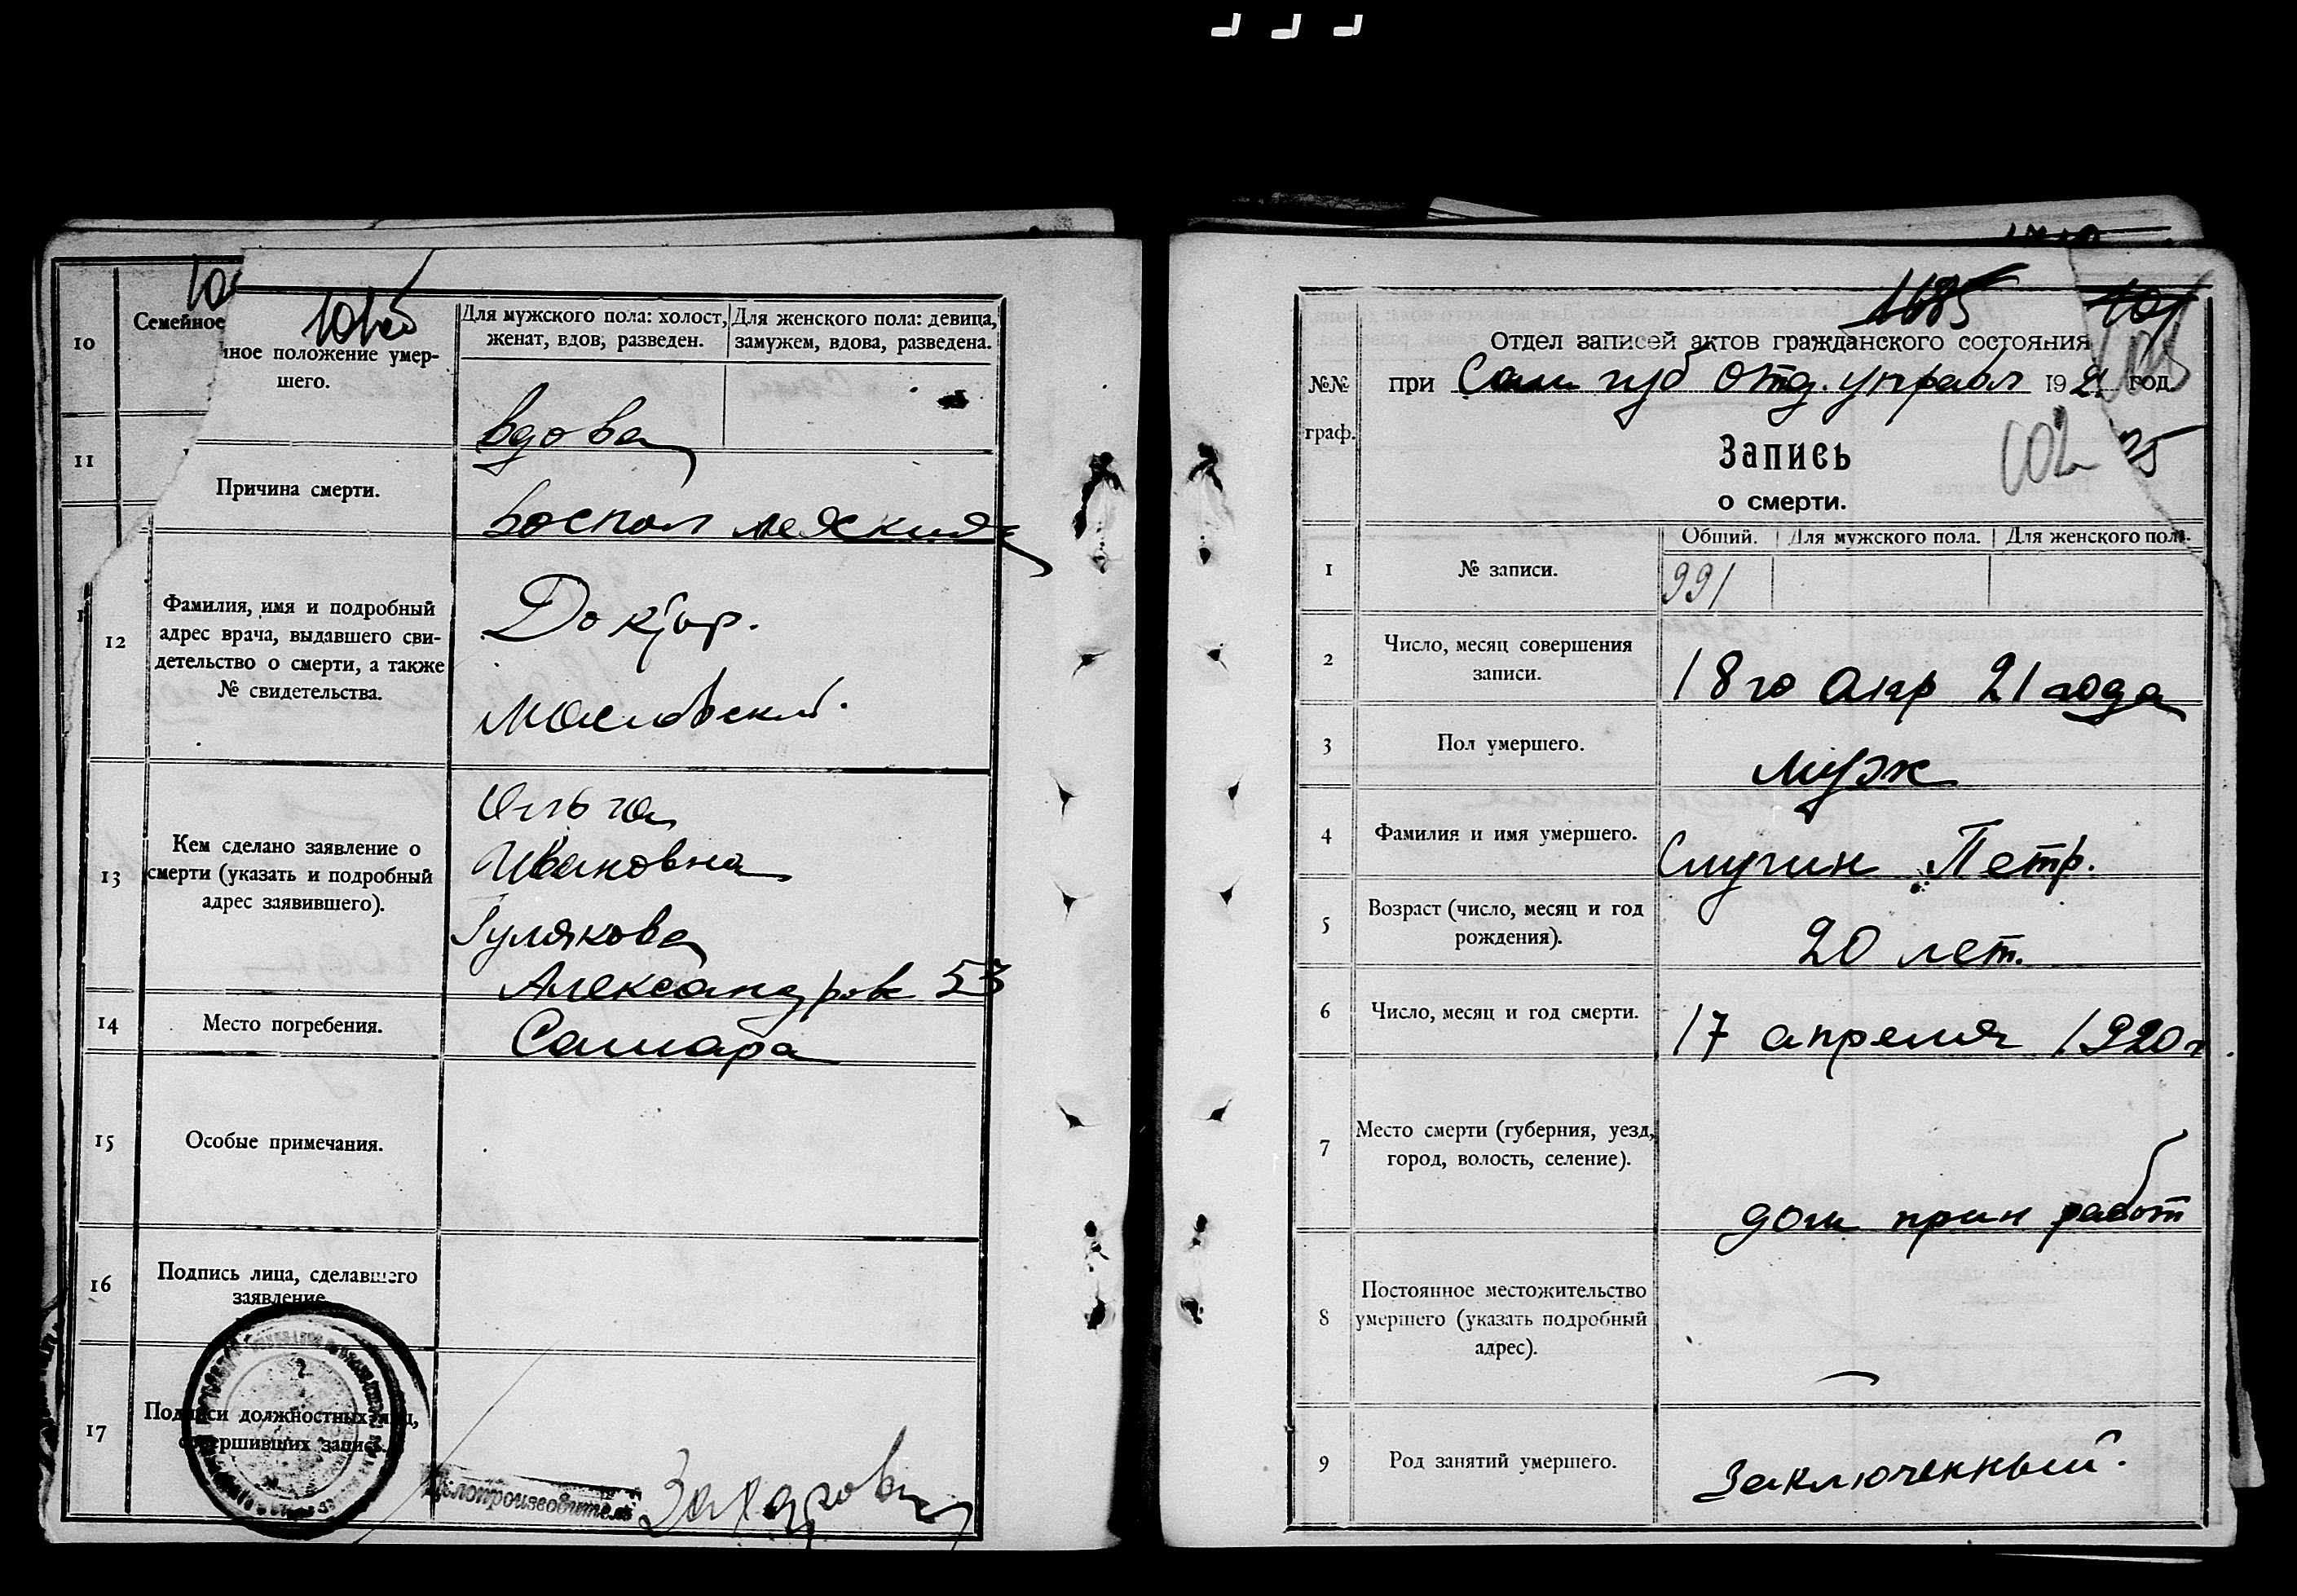 10
Семейное
1016
нное положение умер-
шего.
Для мужского пола: холост,
женат, вдов, разведен.
Для женского пола: девица,
замужем, вдова, разведена.
вдова
11
Причина смерти.
воспол легких
12
Фамилия, имя и подробный
адрес врача, выдавшего сви-
детельство о смерти, а также
№ свидетельства.
Доктор.
Масловский.
13
Кем сделано заявление о
смерти (указать и подробный
адрес заявившего).
Ольга
Ивановна
Гулякова
Александровс 53
14
Место погребения.
Самара
15
Особые примечания.
16
Подпись лица, сделавшего
заявление
17
Подписи должностных лиц,
совершивших запись.
Делопроизводитель
1685
Отдел записей актов гражданского состояния
№№
граф.
при Сам губ отд. управл 1921 год.
Запись
о смерти.
Общий.
Для мужского пола.
Для женского пола.
1
№ записи.
991
2
Число, месяц совершения
записи.
18го Апр 21 года
3
Пол умершего.
муж
4
Фамилия и имя умершего.
Петр.
5
Возраст (число, месяц и год
рождения).
20 лет.
6
Число, месяц и год смерти.
17 апреля 1920 г.
7
Место смерти (губерния, уезд,
город, волость, селение).
дом прин работ
8
Постоянное местожительство
умершего (указать подробный
адрес).
—
9
Род занятий умершего.
Заключенный.